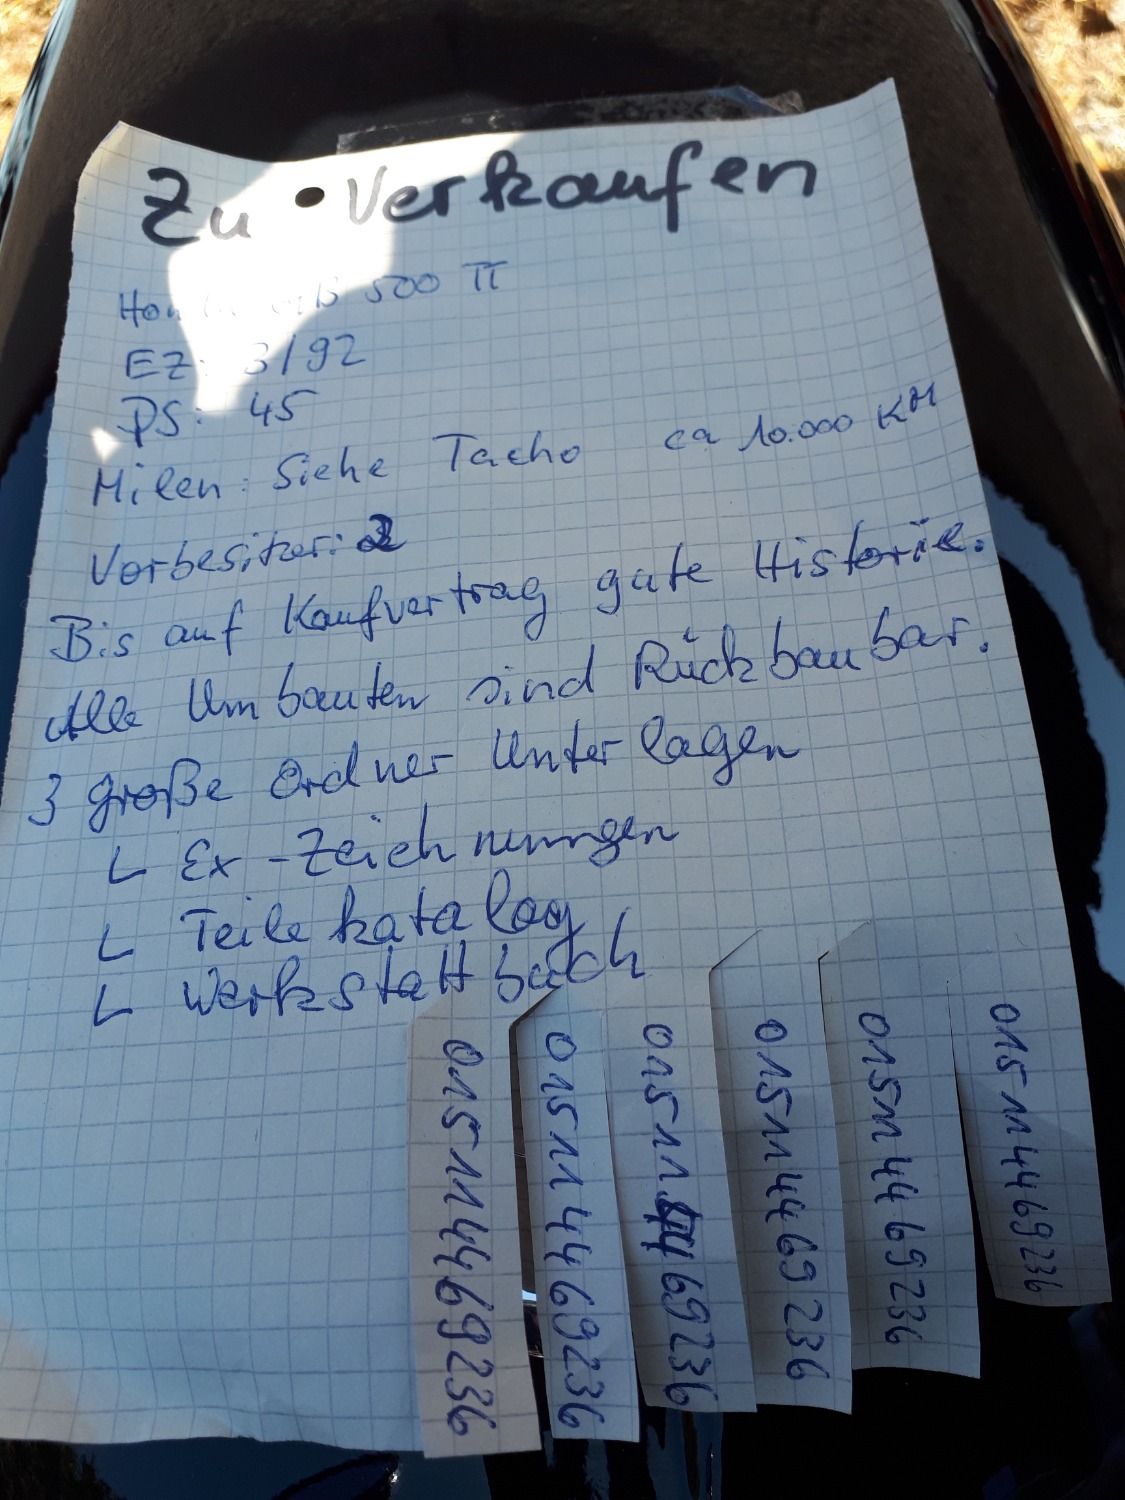 Zu Verkaufen
500 TT
EZ: 3/92
PS: 45
Milen: Siehe Tacho ca 10.000 KM
Vorbesitzer: 2
Bis auf Kaufvertrag gute Historie.
Alle Umbauten sind Rückbaubar.
3 große Ordner Unterlagen
Ex-Zeichnungen
Teilekatalog
Werkstattbuch
015114469236
015114469236
015114469236
015114469236
015114469236
015114469236